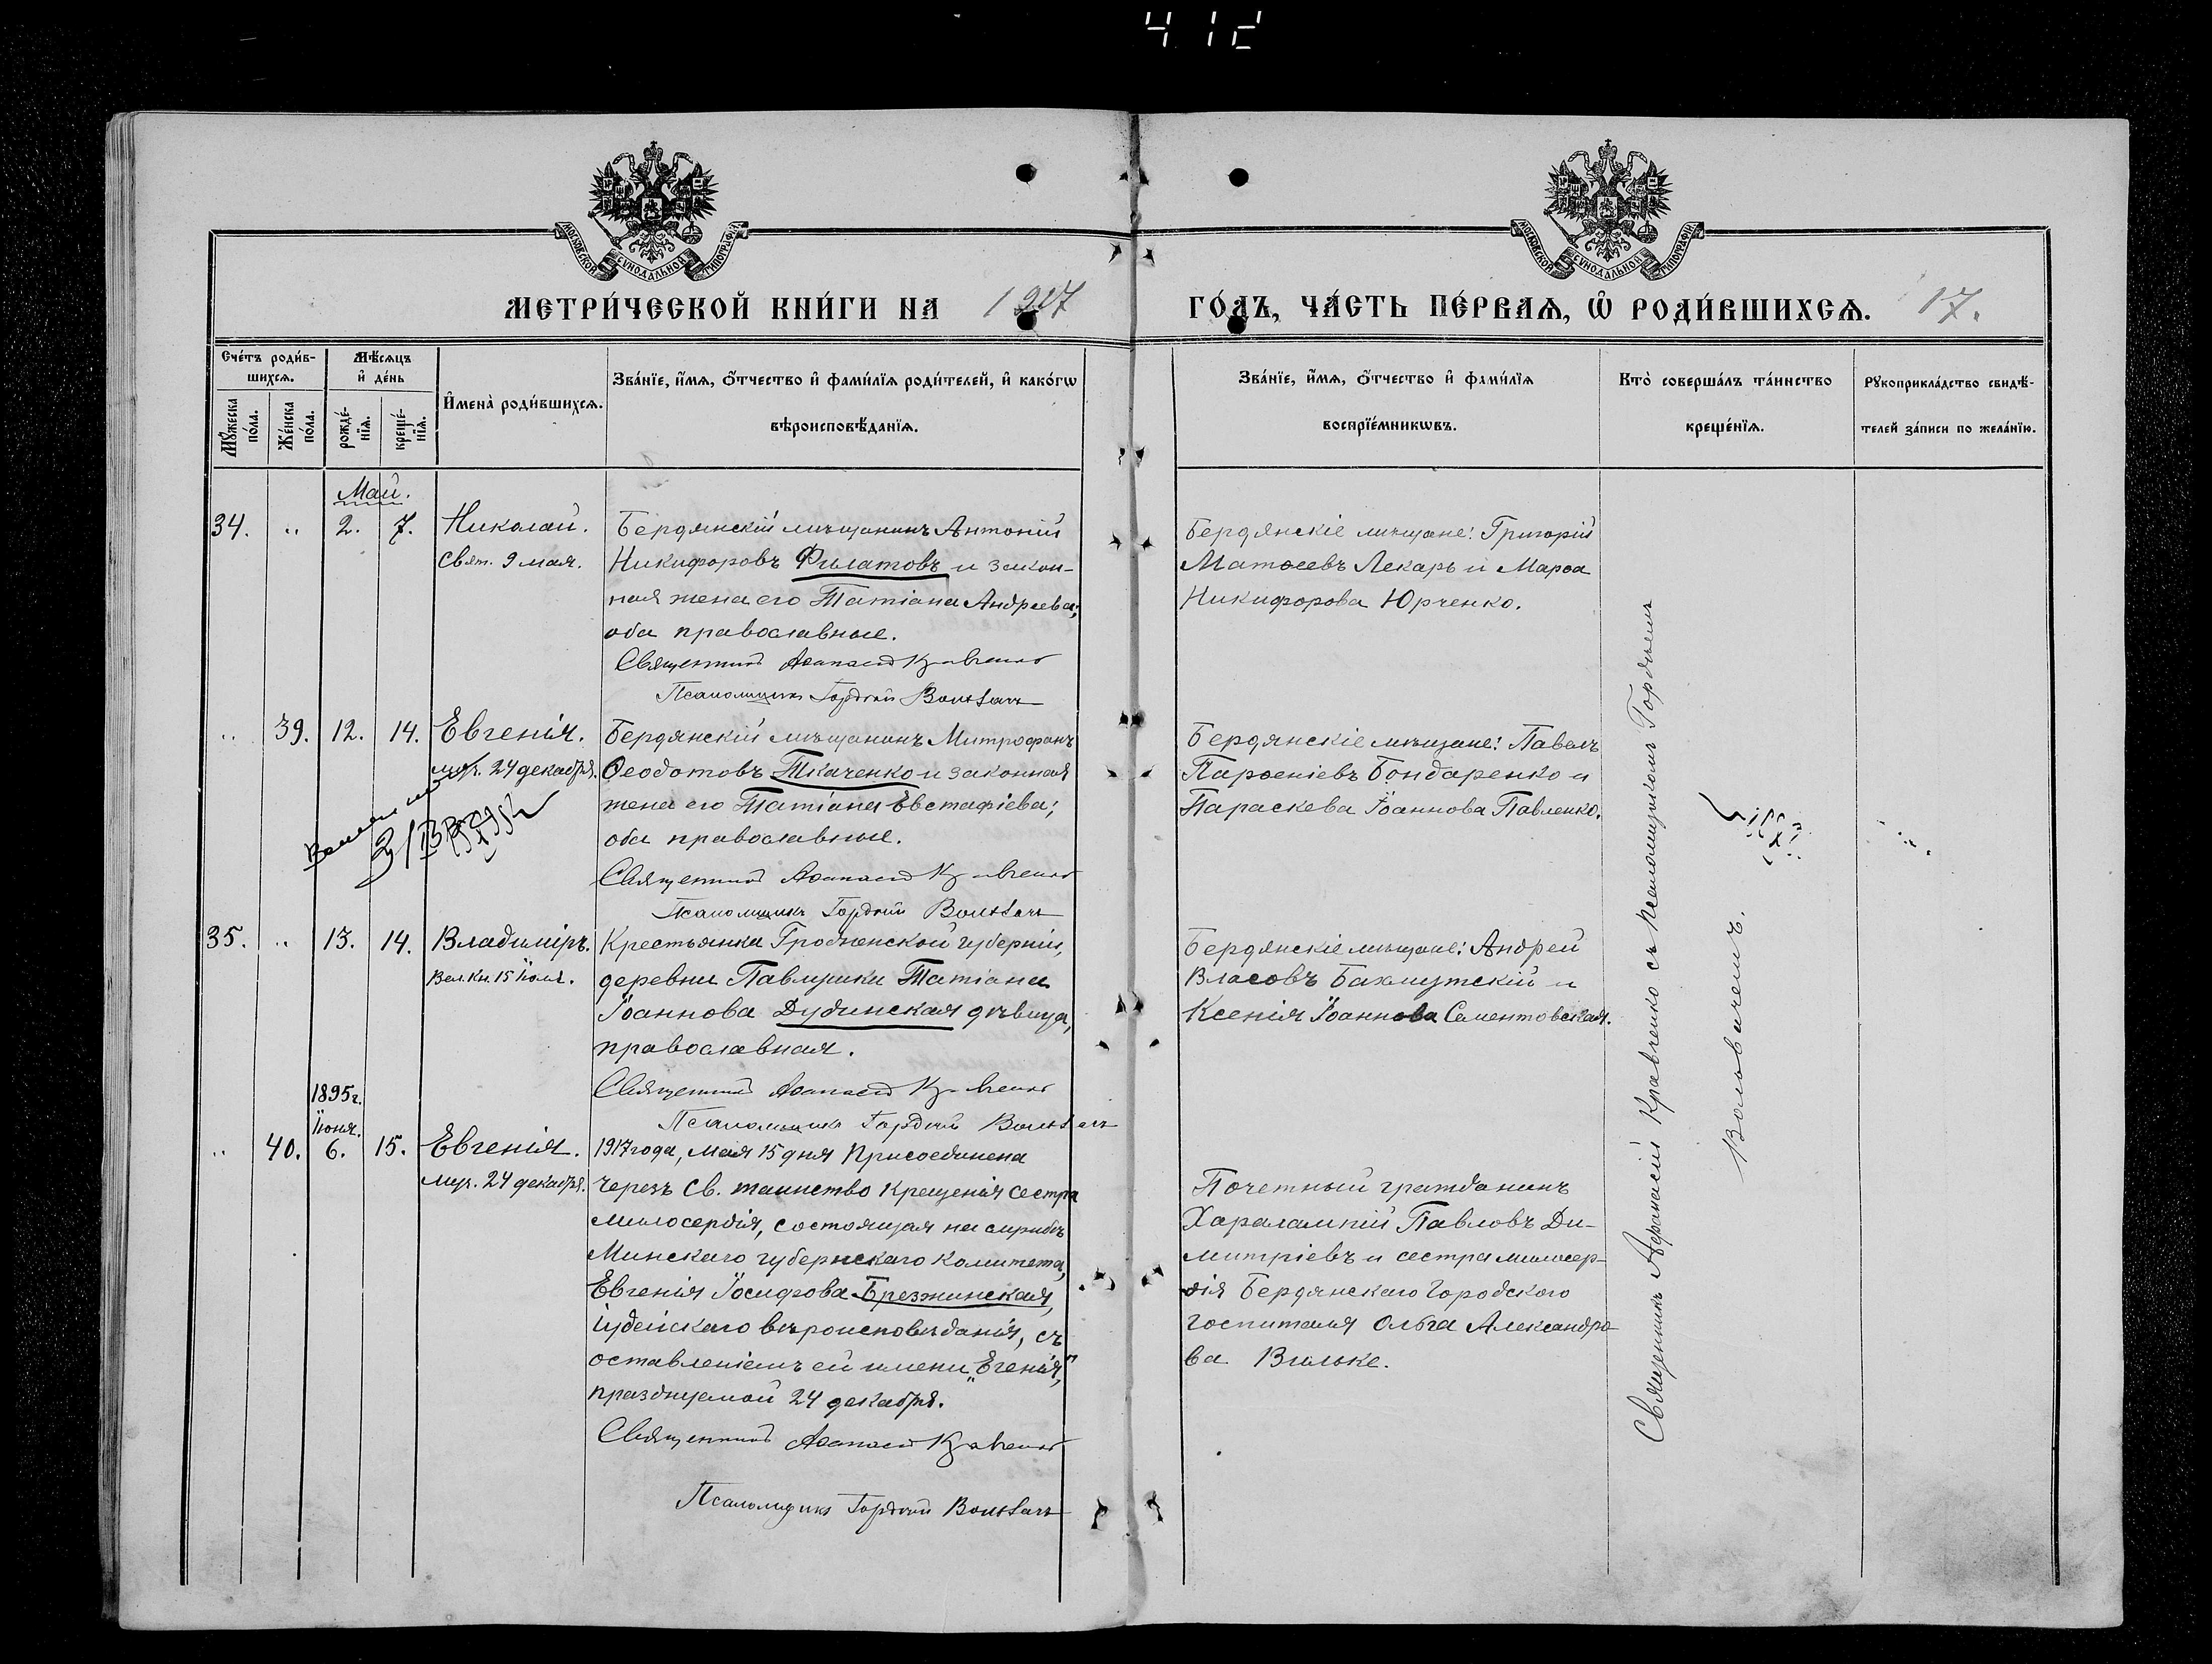 412
МОСКОВСКОЙ СУНОДАЛЬНОЙ ТИПОГРАФІИ
МОСКОВСКОЙ СУНОДАЛЬНОЙ ТИПОГРАФІИ
МЕТРИ́ЧЕСКОЙ КНИ́ГИ НА 1917
ГО́ДЪ, ЧА́СТЬ ПЕ́РВАѦ, Ѡ҆ РОДИ́ВШИХСѦ. 17.
Сче́тъ роди́в-
шихсѧ.
Мꙋ́жеска по́ла.
Же́нска по́ла.
Мѣ́сѧцъ
и҆ де́нь
рожде́-
нїѧ.
креще́-
нїѧ.
И҆мена̀ роди́вшихсѧ.
Зва́нїе, и҆́мѧ, ѻ҆́тчество и҆ фами́лїѧ роди́телей, и҆ како́гѡ
вѣроисповѣ́данїѧ.
Зва́нїе, и҆́мѧ, ѻ҆́тчество и҆ фами́лїѧ
воспрїе́мникѡвъ.
Кто̀ соверша́лъ та́инство
креще́нїѧ.
Рꙋкоприкла́дство свидѣ́-
телей за́писи по жела́нїю.
Май.
34. „ 2. 7. Николай.
Свят. 9 мая.
Бердянскій мѣщанинъ Антоній
Никифоровъ Филатовъ и закон-
ная жена его Татіана Андреева;
оба православные.
Священникъ Аѳанасій Кравченко
Псаломщикъ Гордѣй Воловачъ
Бердянскіе мѣщане: Григорій
Матѳеевъ Лекарь и Марѳа
Никифорова Юрченко.
„ 39. 12. 14. Евгенія.
муч. 24 декабря.
Бердянскій мѣщанинъ Митрофанъ
Ѳеодотовъ Ткаченко и законная
жена его Татіана Евстафіева;
оба православные.
Священникъ Аѳанасій Кравченко
Псаломщикъ Гордѣй Воловачъ
Бердянскіе мѣщане: Павелъ
Парѳеніевъ Бондаренко и
Параскева Іоаннова Павленко.
35. „ 13. 14. Владиміръ.
Вел. Кн. 15 Іюля.
Крестьянка Гродненской губерніи,
деревни Павлушки Татіана
Іоаннова Дудинская дѣвица,
православная.
Священникъ Аѳанасій Кравченко
Псаломщикъ Гордѣй Воловачъ
Бердянскіе мѣщане: Андрей
Власовъ Бахмутскій и
Ксенія Іоаннова Сементовская.
1895 г.
Іюня.
„ 40. 6. 15. Евгенія.
муч. 24 декабря.
1917 года, Мая 15 дня Присоединена
черезъ Св. таинство Крещенія сестра
милосердія, состоящая на службѣ
Минскаго губернскаго Комитета,
Евгенія Іосифова Брезжинская,
іудейскаго вѣроисповѣданія, съ
оставленіемъ ей имени „Егенія",
празднуемой 24 декабря.
Священникъ Аѳанасій Кравченко
Псаломщикъ Гордѣй Воловачъ
Почетный гражданинъ
Харалампій Павловъ Ди-
митріевъ и сестра милосер-
дія Бердянскаго Городского
госпиталя Ольга Александро-
ва Вильке.
Священникъ Афанасій Кравченко съ псаломщикомъ Гордѣемъ
Воловачемъ.